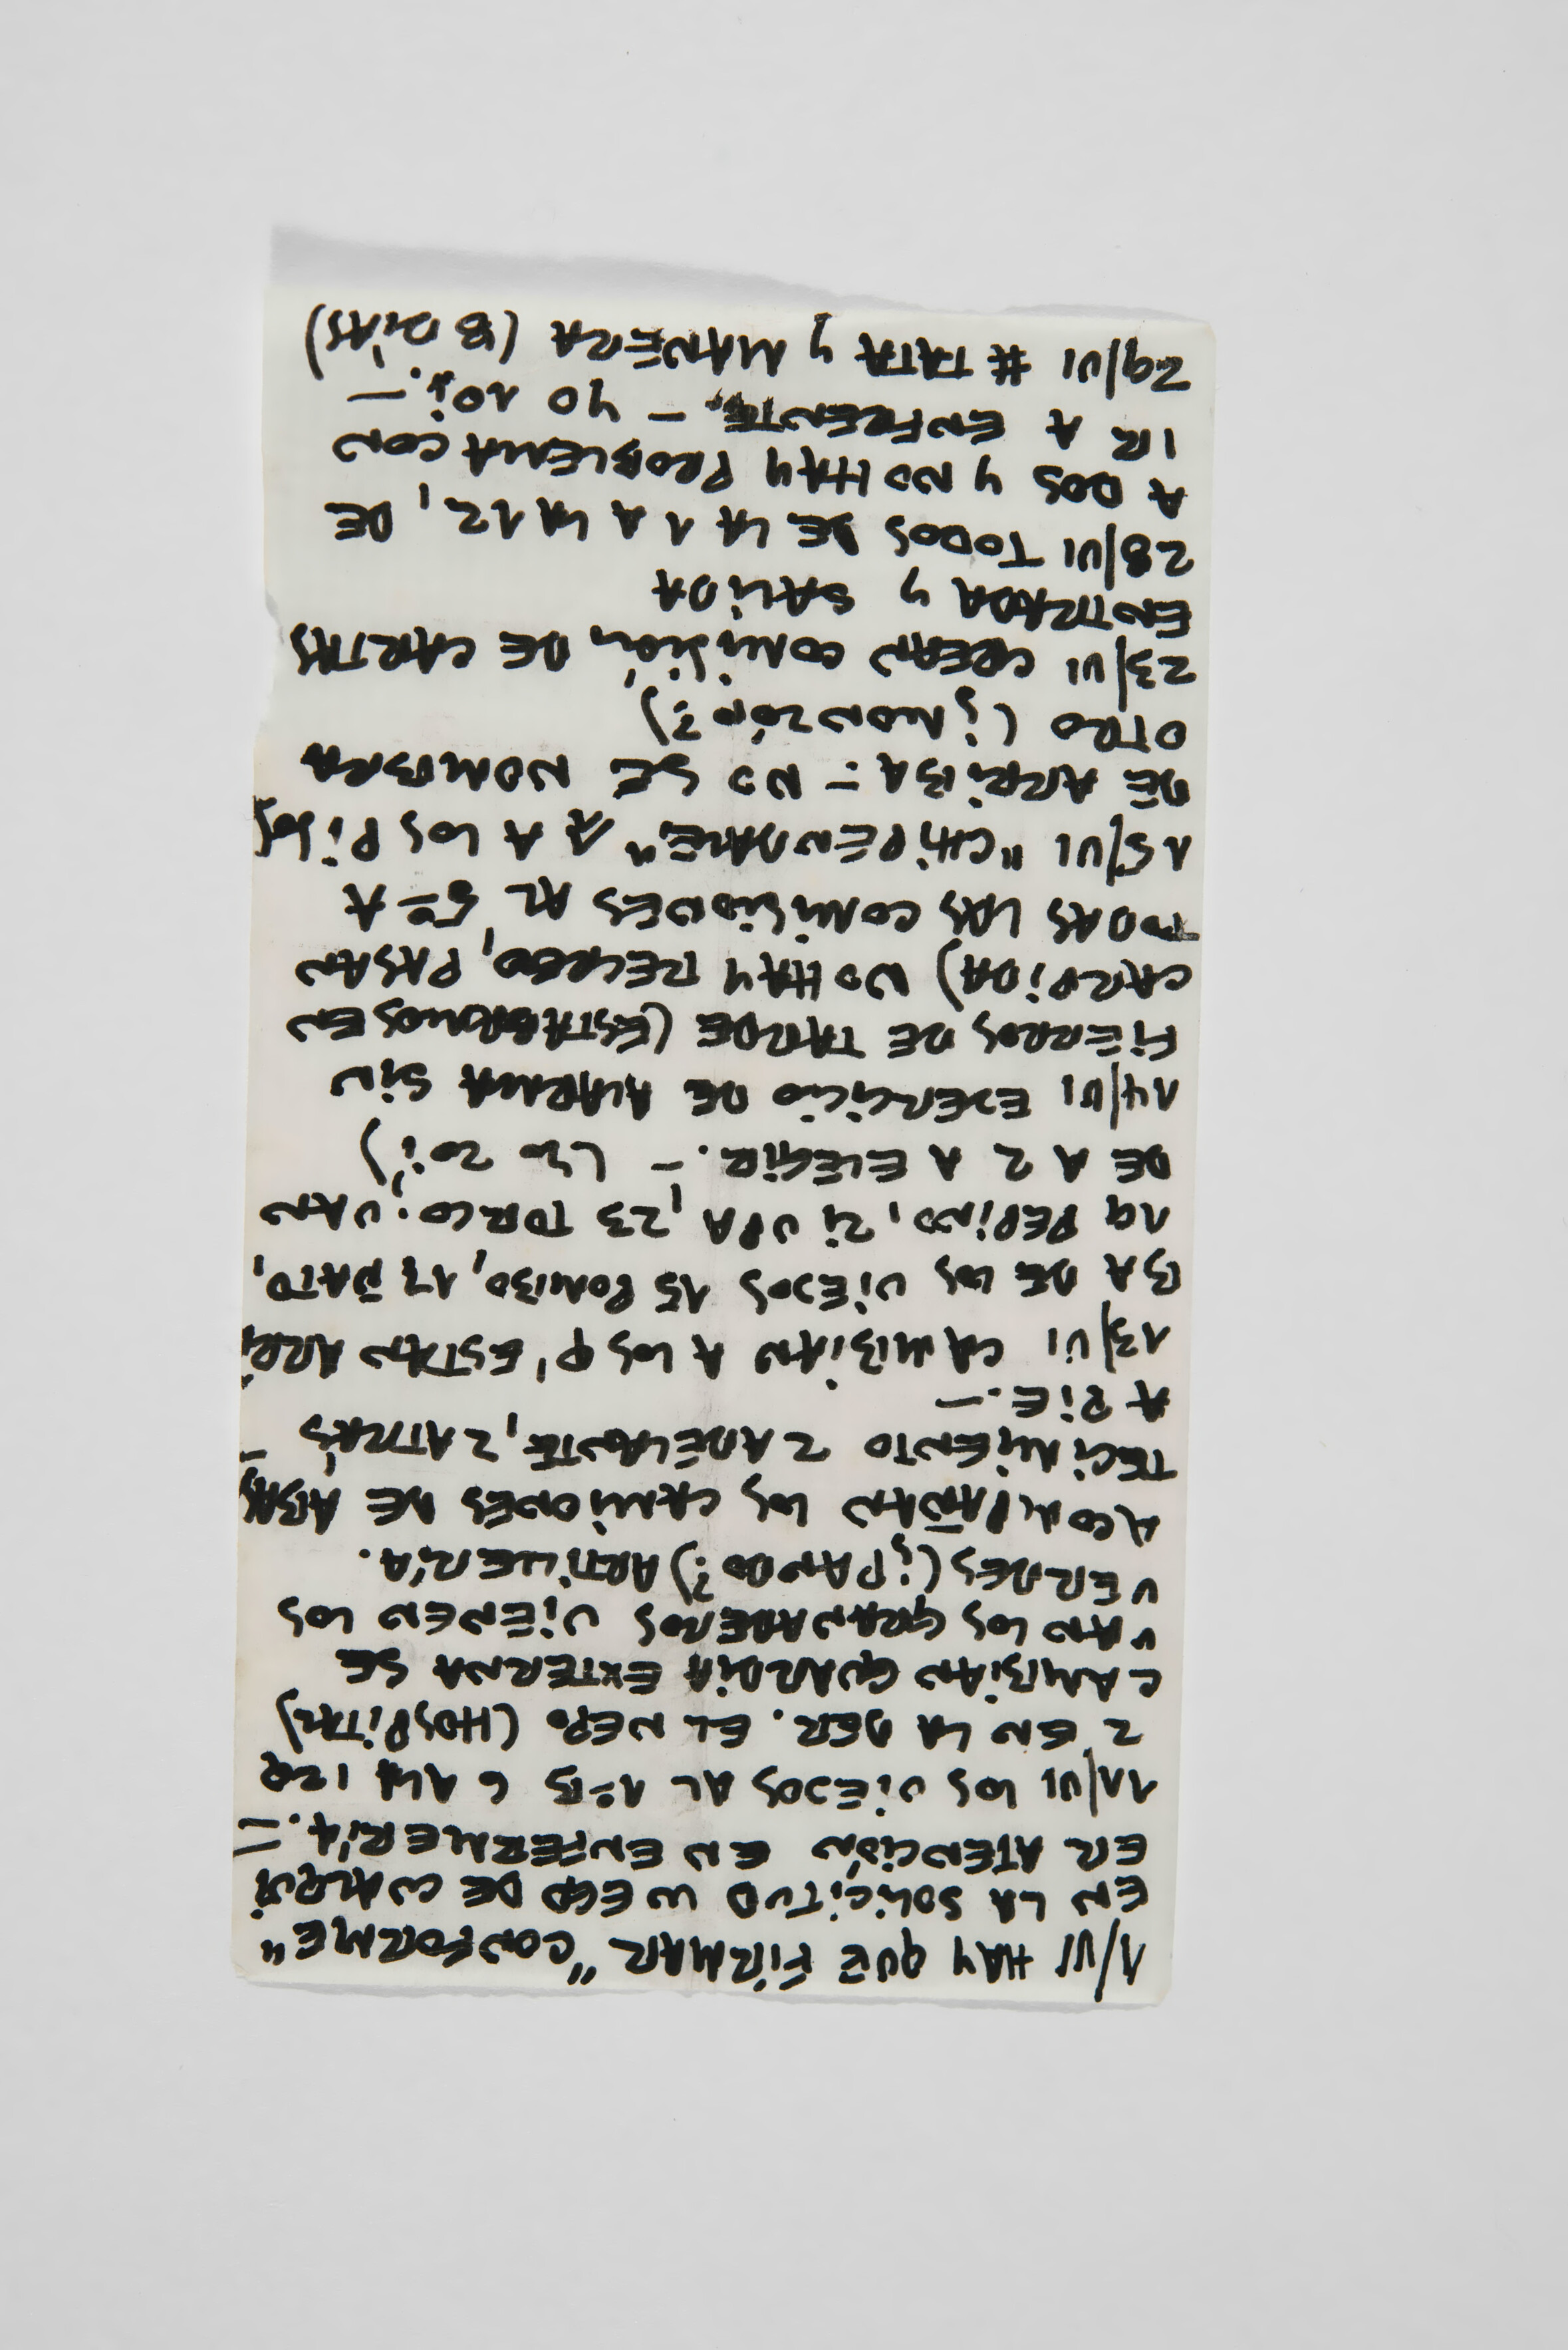 1/VI HAY QUE FIRMAR "CONFORME"
EN LA SOLICITUD LUEGO DE CUALQUI
ER ATENCIÓN EN ENFERMERÍA.—
11/VI LOS VIEJOS AL 1º B 6 A LA IZQ
2 EN LA DER. EL ÑEPO (HOSPITAL)
CAMBIAN GUARDIA EXTERNA SE
VAN LOS GRANADEROS VIENEN LOS
VERDES (¿PANDO?) ARTILLERÍA.
ACOMPAÑAN LOS CAMIONES DE ABAS
TECIMIENTO 2 ADELANTE, 2 ATRÁS —
A PIE.—
13/VI CAMBIAN A LOS P' ESTÁN ARRI
BA DE LOS VIEJOS 15 POMBO, 17 ÑATO,
19 PEPINO, 21 UPA, 23 TORCO; VAN
DE A 2 A ELEGIR.— (YO 20¡)
14/VI EJERCICIO DE ALARMA SIN
FIERROS DE TARDE (ESTABAMOS EN
CARPIDA) NO HAY RECREO, PASAN
TODAS LAS COMISIONES AL 5º A
15/VI "CHIPENDALE" A LOS PISOS
DE ARRIBA — NO SE NOMBRA
OTRO (¿MONZÓN?)
23/VI CREAN COMISIÓN DE CARTAS
ENTRADA Y SALIDA
28/VI TODOS DE LA 1 A LA 12, DE
A DOS Y NO HAY PROBLEMA CON
IR A ENFRENTE.— YO 10¡.—
29/VI # TATA Y MANERA (8 DÍAS)